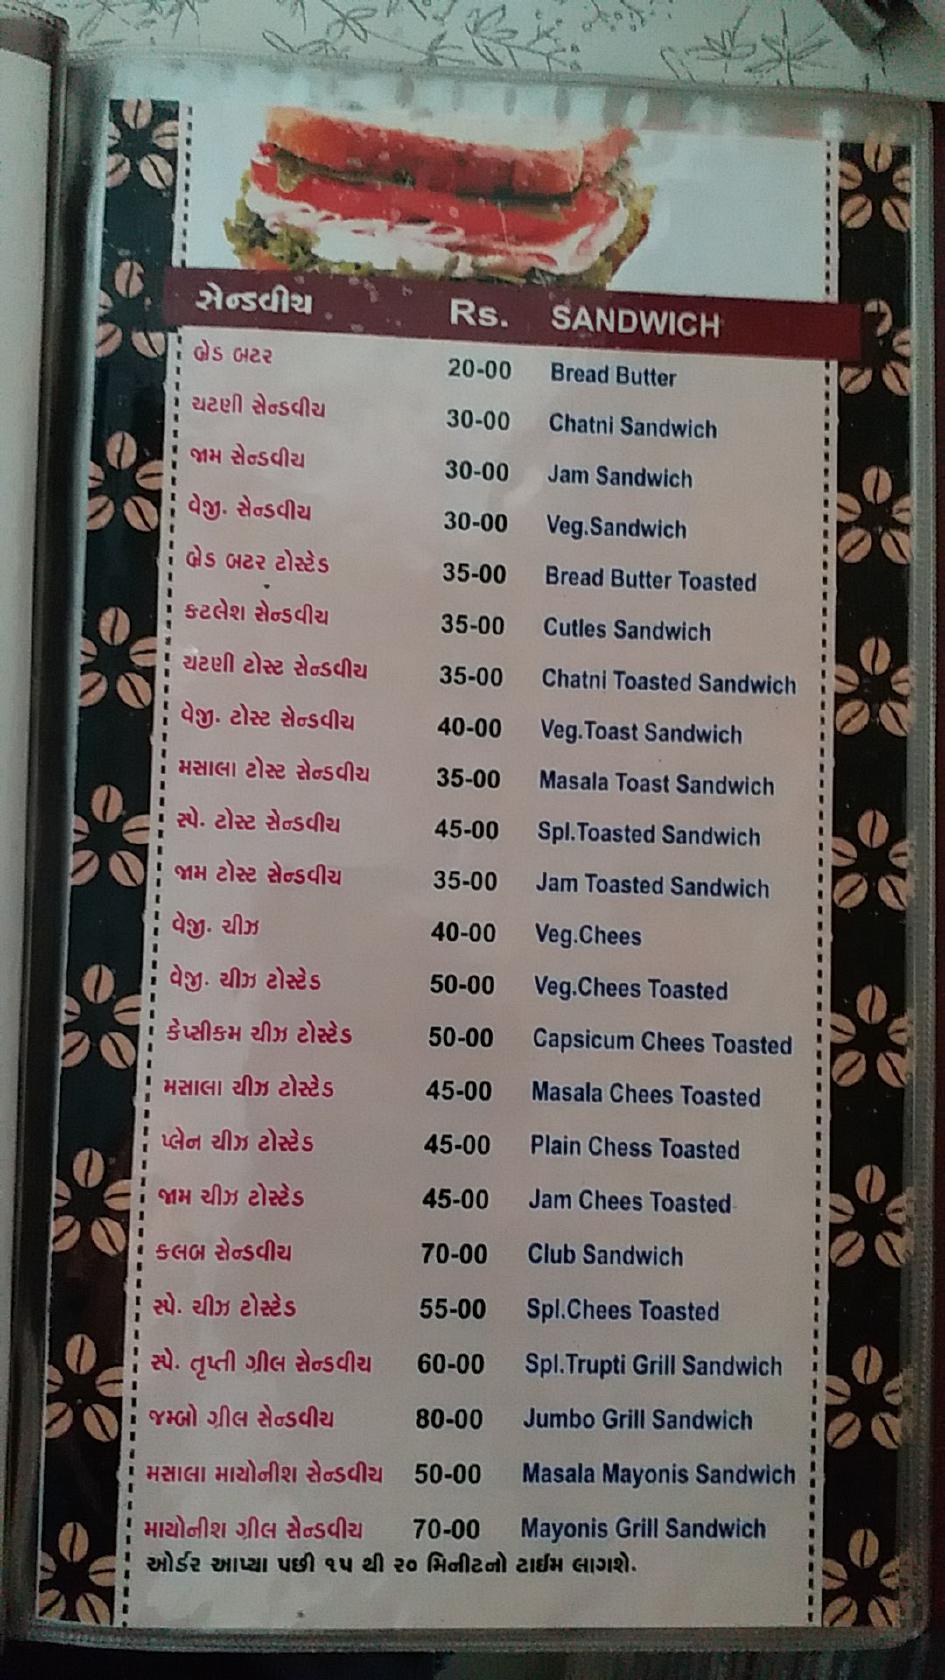 સેન્ડવીચ Rs. SANDWICH
બ્રેડ બટર 20-00 Bread Butter
ચટણી સેન્ડવીચ 30-00 Chatni Sandwich
જામ સેન્ડવીચ 30-00 Jam Sandwich
વેજી. સેન્ડવીચ 30-00 Veg.Sandwich
બ્રેડ બટર ટોસ્ટેડ 35-00 Bread Butter Toasted
કટલેશ સેન્ડવીચ 35-00 Cutles Sandwich
ચટણી ટોસ્ટ સેન્ડવીચ 35-00 Chatni Toasted Sandwich
વેજી. ટોસ્ટ સેન્ડવીચ 40-00 Veg.Toast Sandwich
મસાલા ટોસ્ટ સેન્ડવીચ 35-00 Masala Toast Sandwich
સ્પે. ટોસ્ટ સેન્ડવીચ 45-00 Spl.Toasted Sandwich
જામ ટોસ્ટ સેન્ડવીચ 35-00 Jam Toasted Sandwich
વેજી. ચીઝ 40-00 Veg.Chees
વેજી. ચીઝ ટોસ્ટેડ 50-00 Veg.Chees Toasted
કેપ્સીકમ ચીઝ ટોસ્ટેડ 50-00 Capsicum Chees Toasted
મસાલા ચીઝ ટોસ્ટેડ 45-00 Masala Chees Toasted
પ્લેન ચીઝ ટોસ્ટેડ 45-00 Plain Chess Toasted
જામ ચીઝ ટોસ્ટેડ 45-00 Jam Chees Toasted
કલબ સેન્ડવીચ 70-00 Club Sandwich
સ્પે. ચીઝ ટોસ્ટેડ 55-00 Spl.Chees Toasted
સ્પે. તૃપ્તી ગ્રીલ સેન્ડવીચ 60-00 Spl.Trupti Grill Sandwich
જમ્બો ગ્રીલ સેન્ડવીચ 80-00 Jumbo Grill Sandwich
મસાલા માયોનીશ સેન્ડવીચ 50-00 Masala Mayonis Sandwich
માયોનીશ ગ્રીલ સેન્ડવીચ 70-00 Mayonis Grill Sandwich
ઓર્ડર આપ્યા પછી ૧૫ થી ૨૦ મિનીટનો ટાઈમ લાગશે.